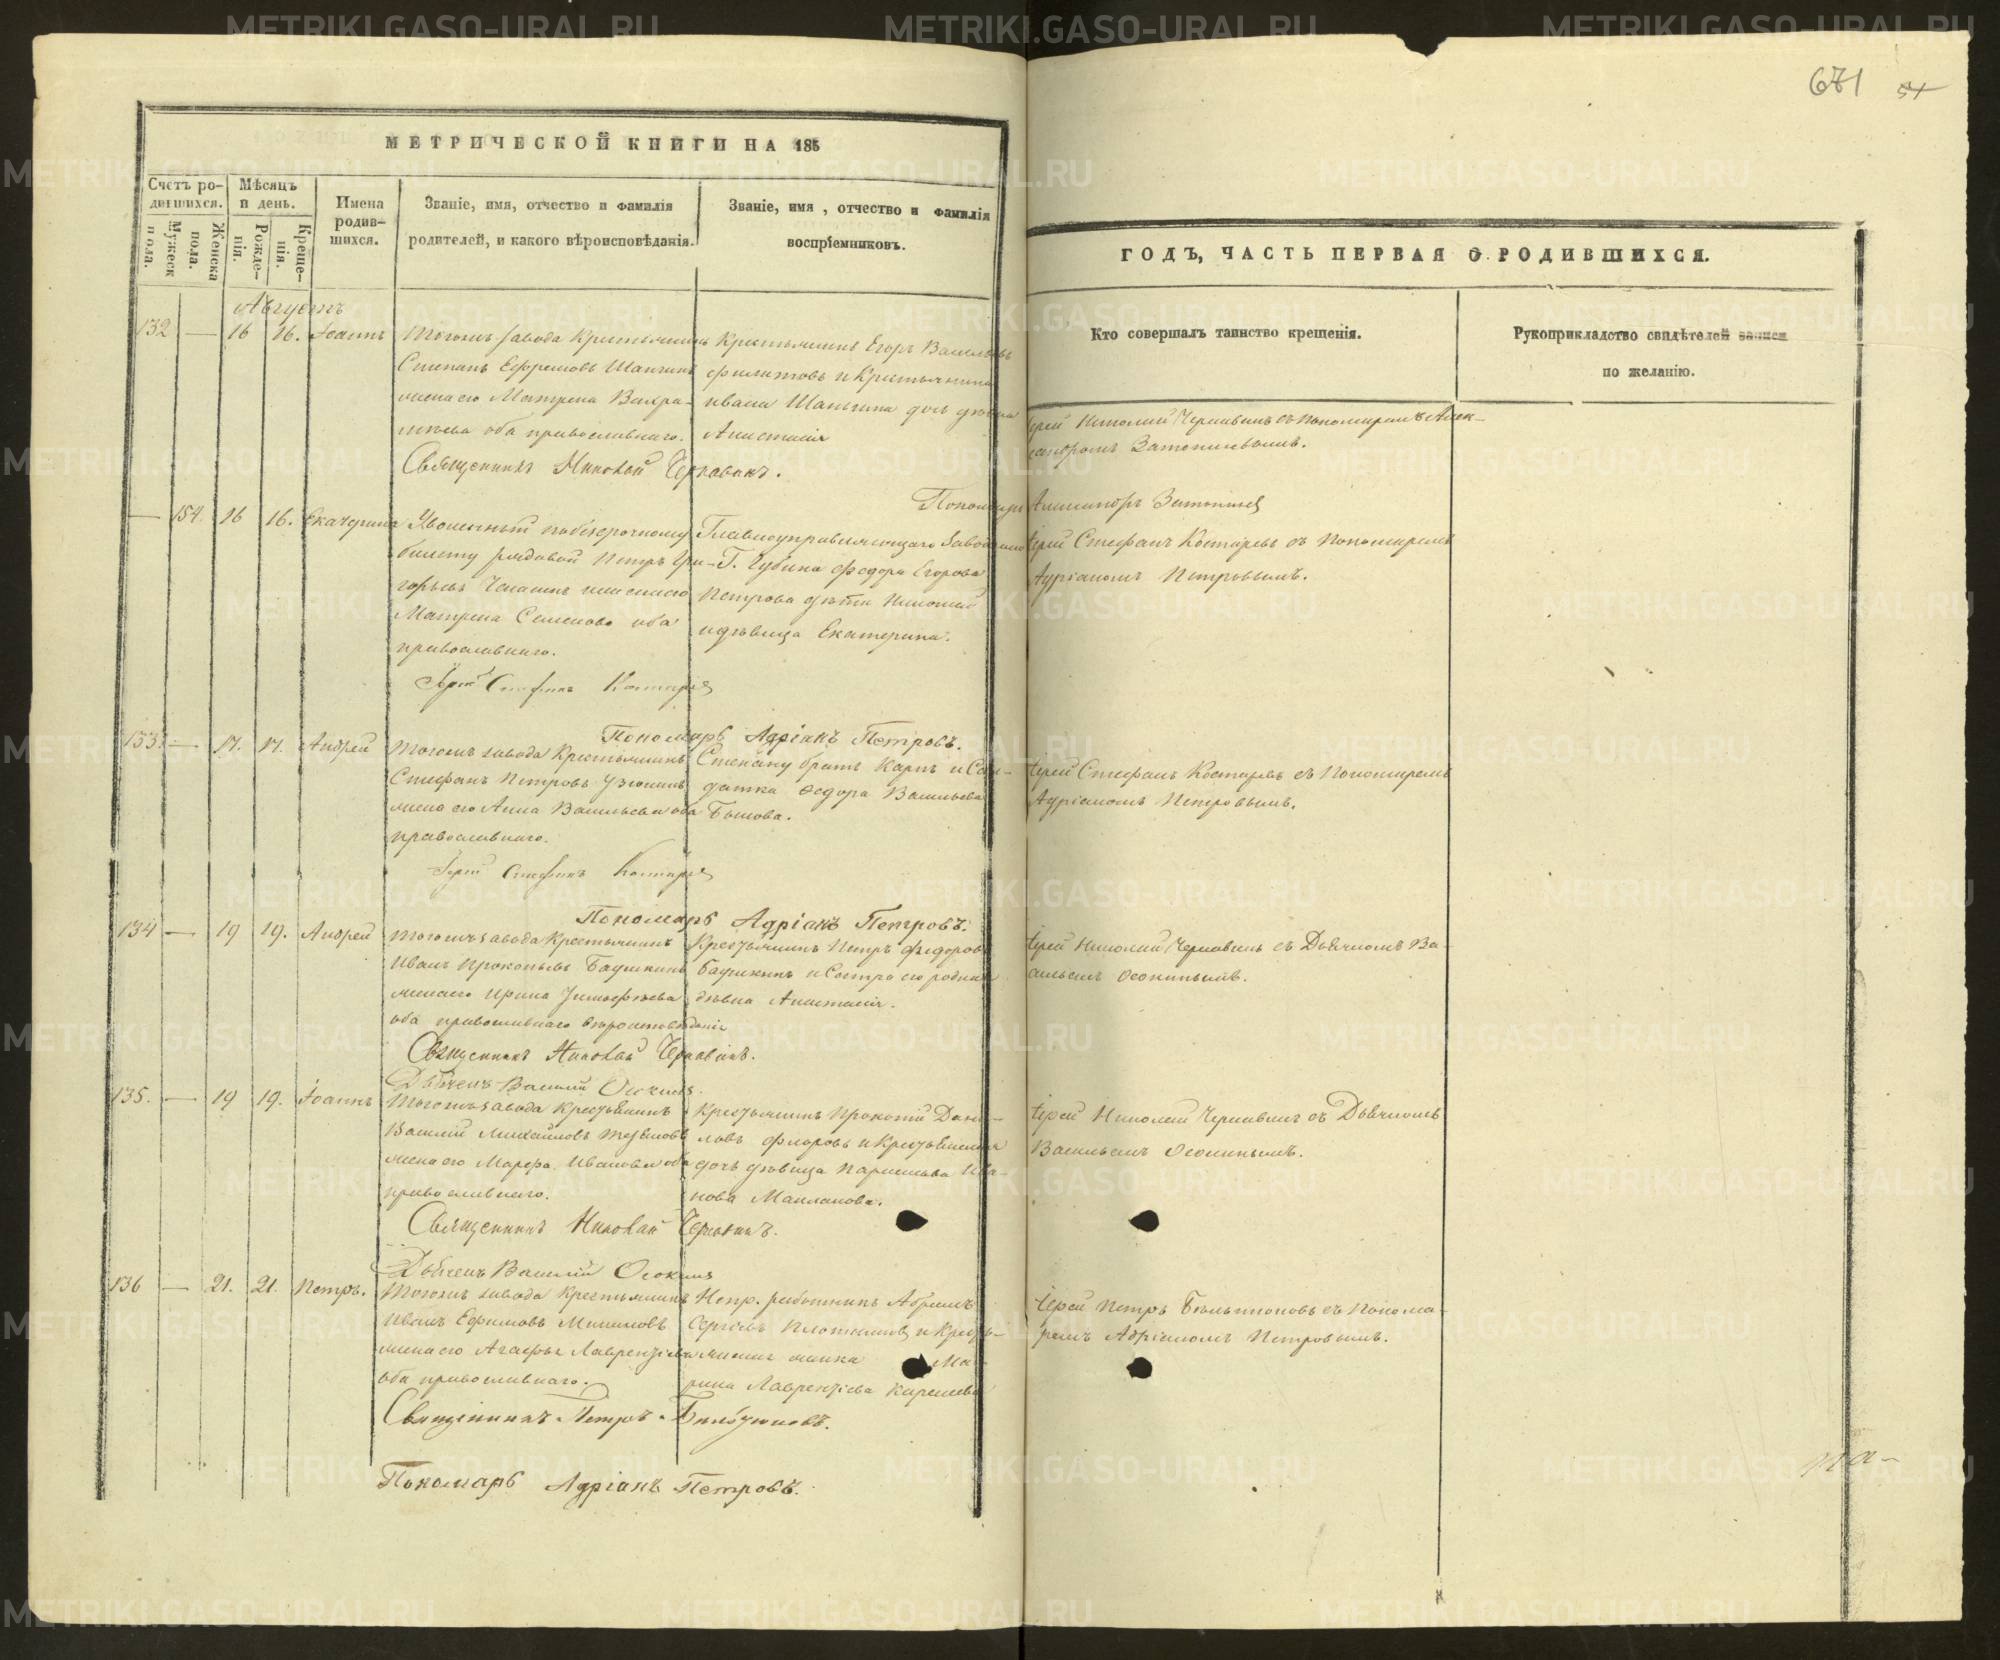 671 51
МЕТРИЧЕСКОЙ КНИГИ НА 185
ГОДЪ, ЧАСТЬ ПЕРВАЯ О РОДИВШИХСЯ.
Счетъ ро-
дившихся.
Мужеск
пола.
Женска
пола.
Мѣсяцъ
и день.
Рожде-
нія.
Креще-
нія.
Имена
родив-
шихся.
Званіе, имя, отчество и фамилія
родителей, и какого вѣроисповѣданія.
Званіе, имя, отчество и фамилія
воспріемниковъ.
Кто совершалъ таинство крещенія.
Рукоприкладство свидѣтелей записи
по желанію.
Августъ
132 — 16 16. Іоаннъ
Тогожъ завода Крестьянинъ
Степанъ Ефремовъ Шапгинъ
жена его Матрена Вахра-
мѣева оба православнаго.
Крестьянинъ Егоръ Васильевъ
Филатовъ и Крестьянина
Ивана дочь дѣвица
Анастасія
Іерей Николай Чернавинъ съ Пономаремъ Алек-
сандромъ
Священникъ Николай Чернавинъ.
Пономарь Александръ
— 154. 16 16. Екатерина
Уволенный по безсрочному
билету рядовой Петръ Гри-
горьевъ жена его
Матрена Семенова оба
православнаго.
Главноуправляющаго Заводами
Г. Губина Федора Егорова
Петрова дѣти Николай
и дѣвица Екатерина.
Іерей Стефанъ Костаревъ съ Пономаремъ
Адріаномъ Петровымъ.
Іерей Стефанъ Костаревъ
Пономарь Адріанъ Петровъ.
133. — 17. 17. Андрей
Тогожъ завода Крестьянинъ
Стефанъ Петровъ Узюнинъ
жена его Анна Васильева оба
православнаго.
Степану братъ Карпъ и Сол-
датка Федора Васильева
Іерей Стефанъ Костаревъ съ Пономаремъ
Адріаномъ Петровымъ.
Іерей Стефанъ Костаревъ
Пономарь Адріанъ Петровъ.
134 — 19 19. Андрей
Тогожъ завода Крестьянинъ
Иванъ Прокопьевъ Баушкинъ
жена его Ирина Тимофѣева
оба православнаго вѣроисповѣданія
Крестьянинъ Петръ Федоровъ
Баушкинъ и Сестра его родная
дѣвка Анастасія.
Іерей Николай Чернавинъ съ Дьячкомъ Ва-
сильемъ Осокинымъ.
Священникъ Николай Чернавинъ.
Дьячекъ Василій Осокинъ.
135. — 19 19. Іоаннъ
Тогожъ завода Крестьянинъ
Василій Михайловъ
жена его Марѳа Иванова оба
православнаго.
Крестьянинъ Прокопій Дани-
ловъ Флоровъ и Крестьянская
дочь дѣвица Парасковья Ива-
нова
Іерей Николай Чернавинъ съ Дьячкомъ
Васильемъ Осокинымъ.
Священникъ Николай Чернавинъ.
Дьячекъ Василій Осокинъ
136 — 21. 21. Петръ.
Тогожъ завода Крестьянинъ
Иванъ Ефимовъ
жена его Агафья Лаврентьева
оба православнаго.
Непр. работникъ Абрамъ
Сергѣевъ Плотниковъ и Кресть-
янская женка Ма-
рина Лаврентьева
Іерей Петръ Бѣльтюковъ съ Понома-
ремъ Адріаномъ Петровымъ.
Священникъ Петръ Бѣльтюковъ.
Пономарь Адріанъ Петровъ.
METRIKI.GASO-URAL.RU